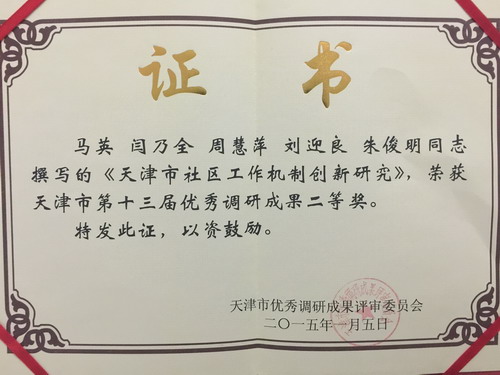 证 书
马英 闫乃全 周慧萍 刘迎良 朱俊明同志
撰写的《天津市社区工作机制创新研究》，荣获
天津市第十三届优秀调研成果二等奖。
特发此证，以资鼓励。
天津市优秀调研成果评审委员会
二〇一五年一月五日